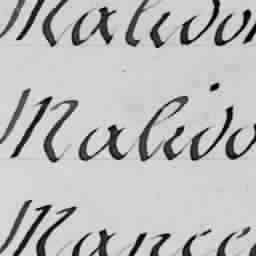 Malidor
Malido
Mance